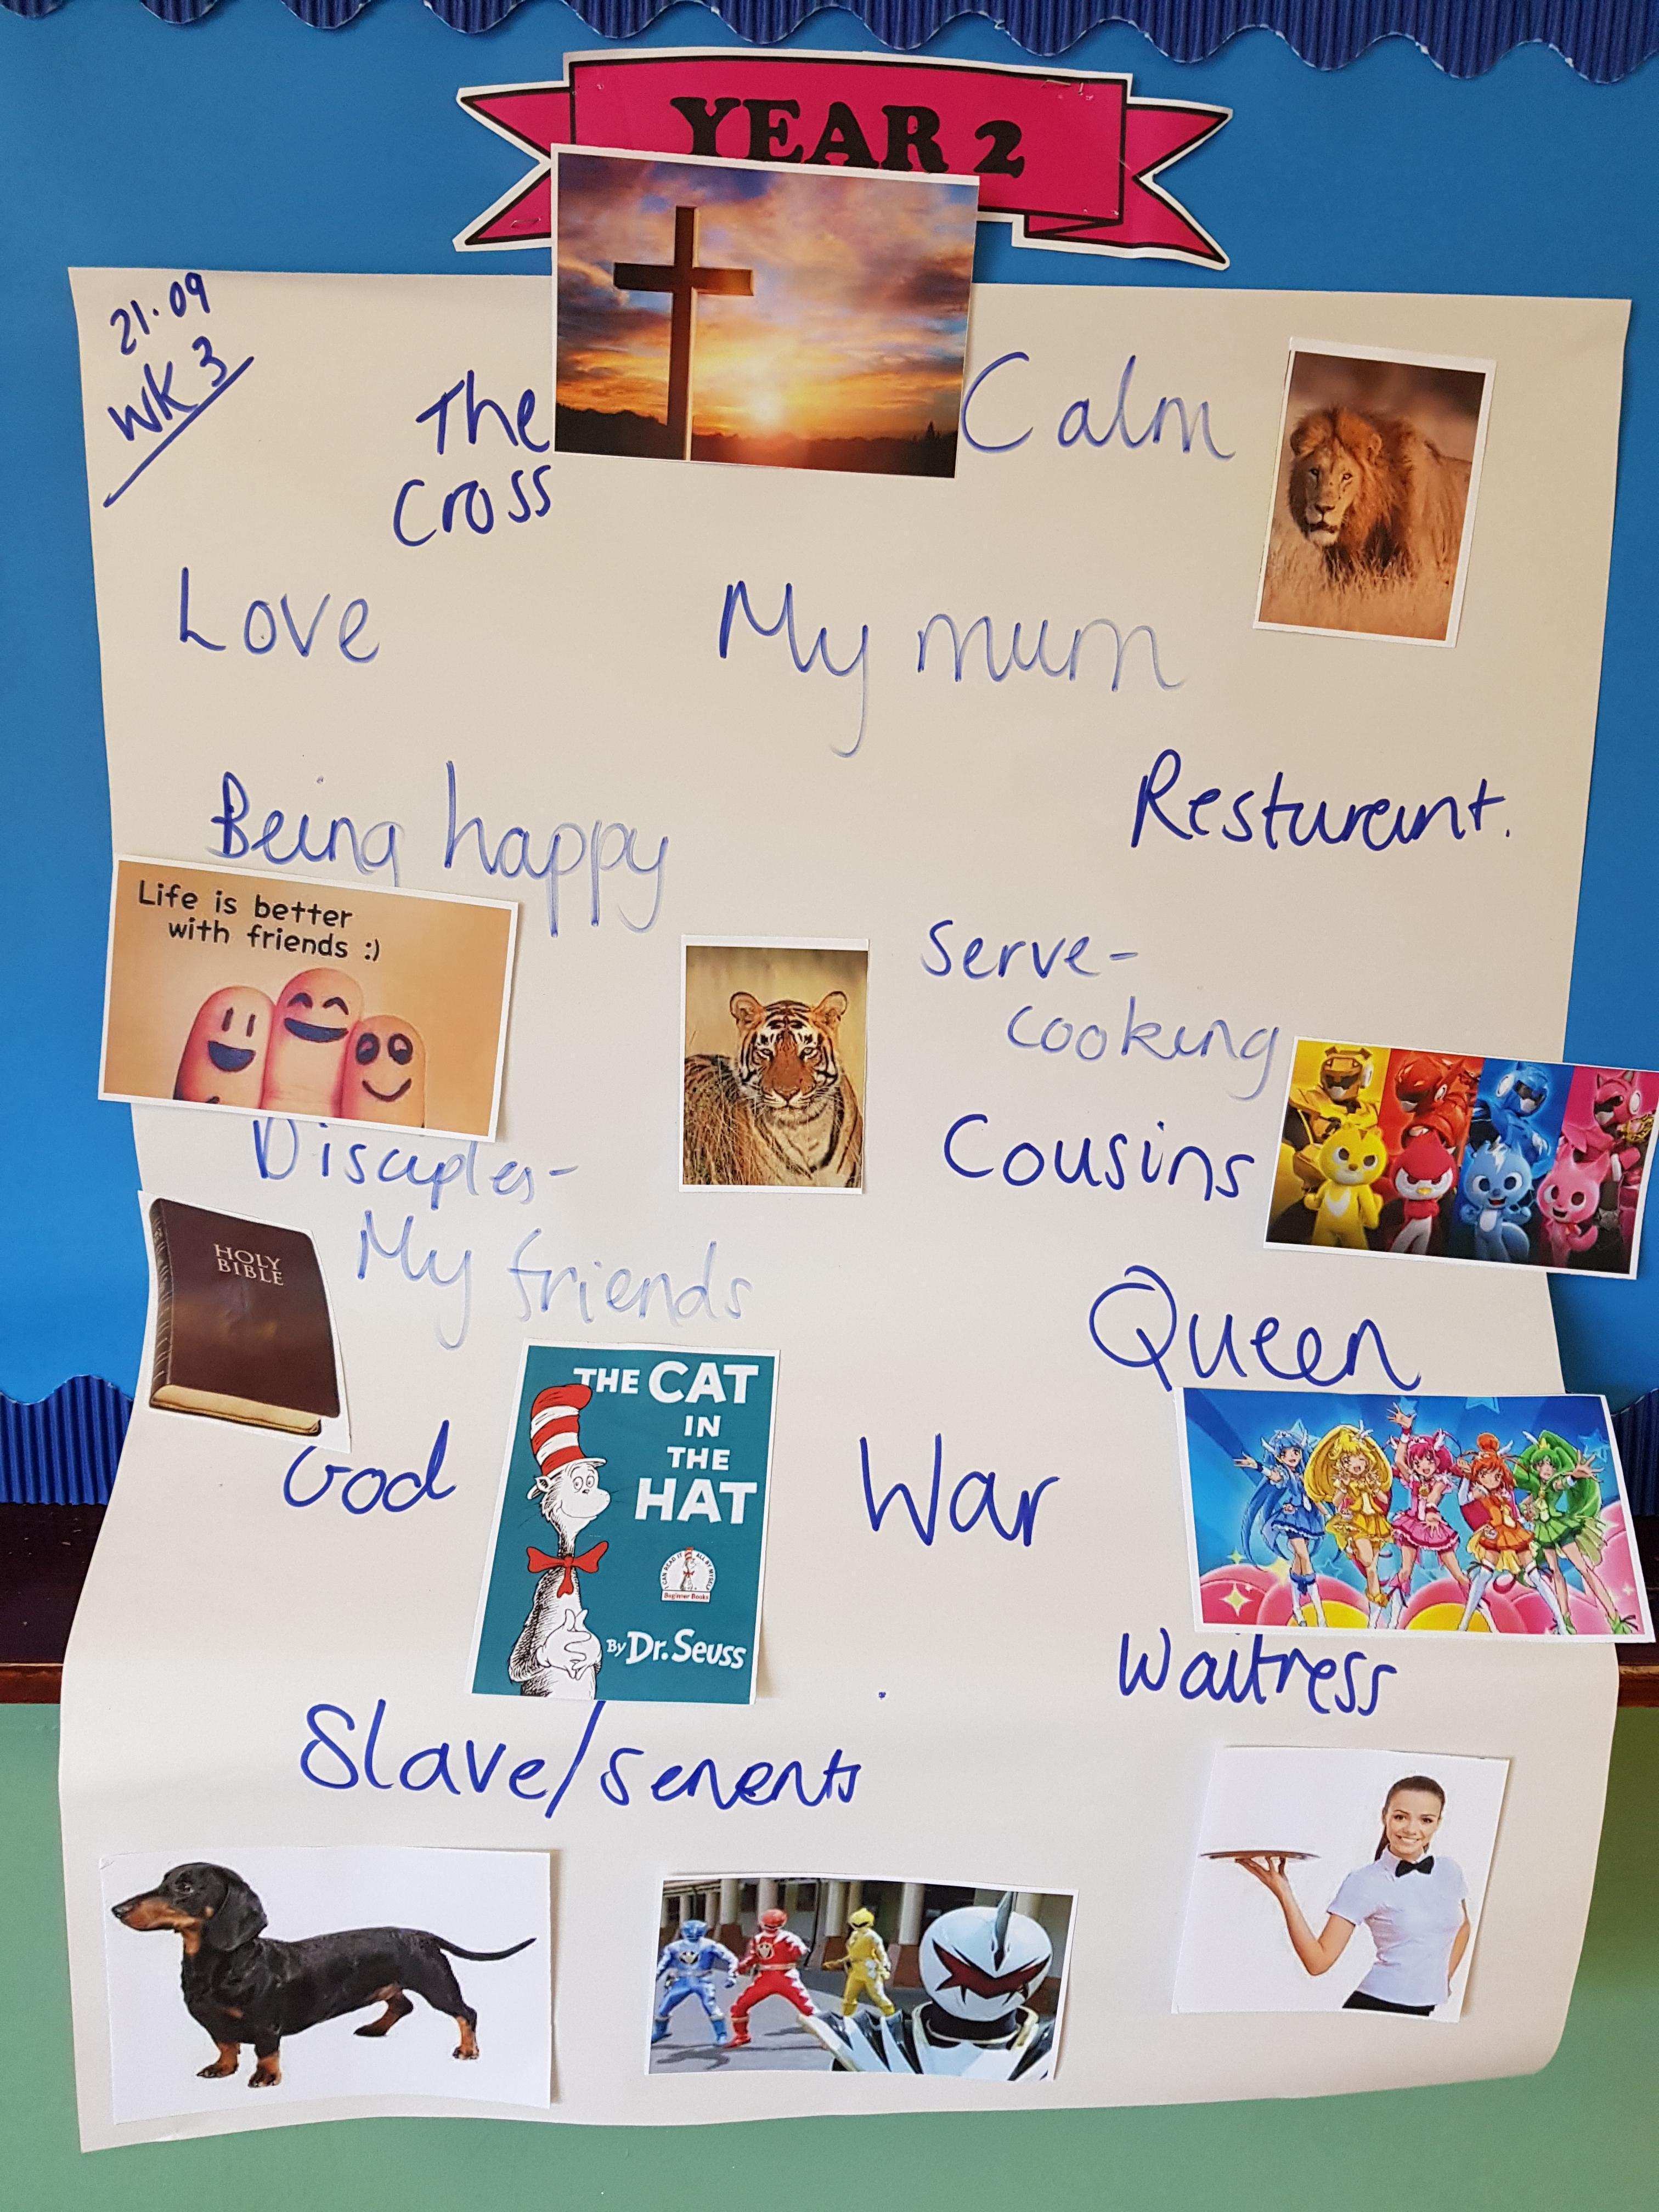 YEAR 2
21.09
WK 3
The
Cross
Calm
Love
My mum
Being happy
Resturant.
Life is better
with friends :)
Serve-
cooking
Disciples-
My friends
Cousins
HOLY
BIBLE
Queen
THE CAT
IN
THE
HAT
I CAN READ IT ALL BY MYSELF
Beginner Books
By Dr. Seuss
God
War
Waitress
Slave/servents